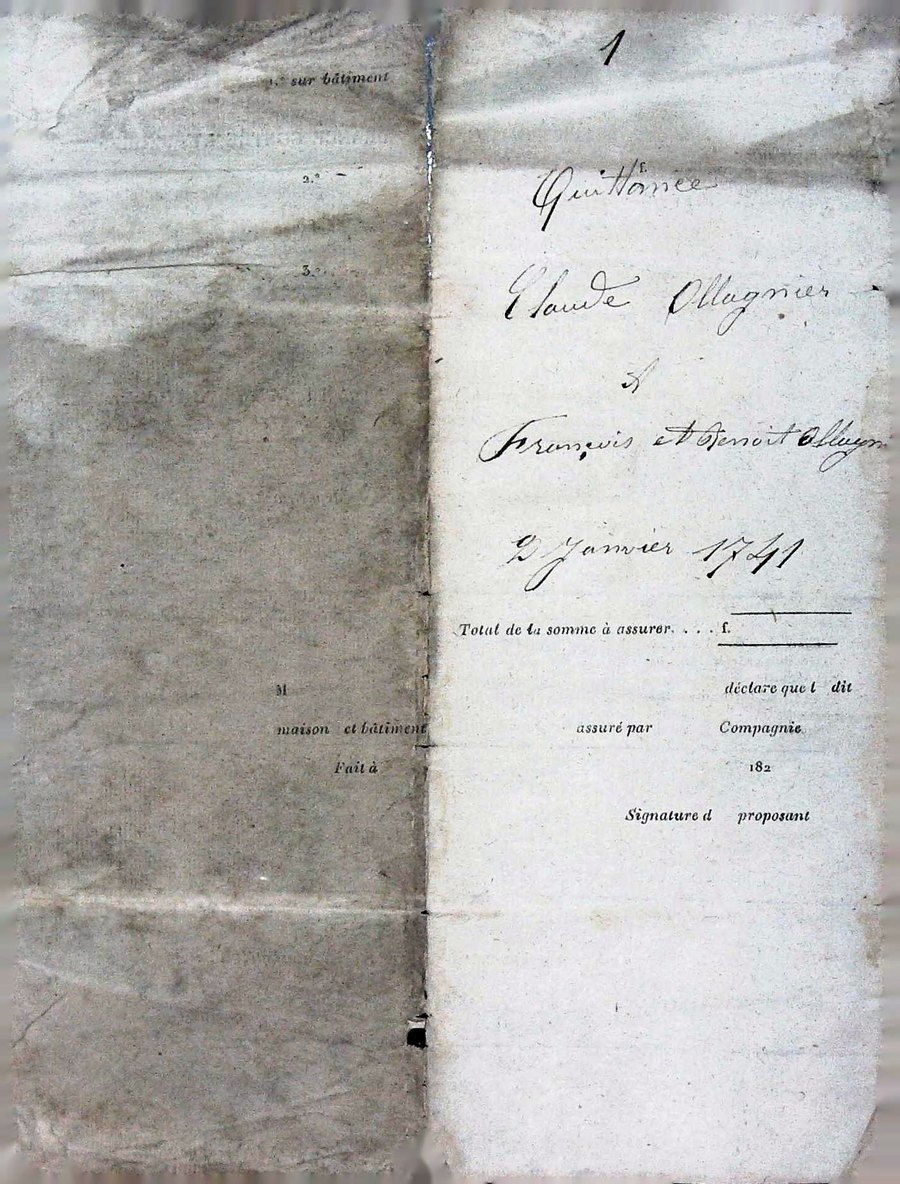 1
1.° sur bâtiment
f.
Quittance
2.°
Claude Ollagnier
3.
A
François et Benoit Ollagn
2 Janvier 1741
Total de la somme à assurer. . . . f.
M déclare que l dit
maison et bâtiment assuré par Compagnie
Fait à 182
Signature d proposant